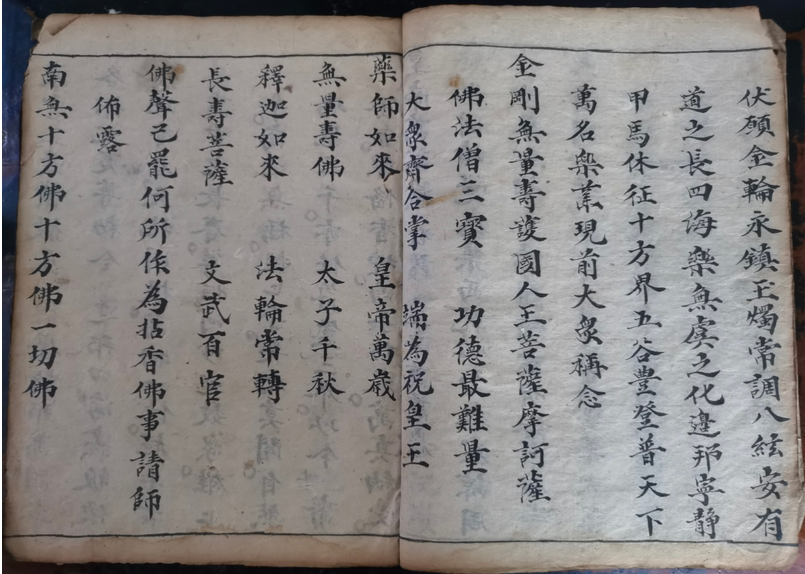 伏願金輪永鎮玉燭常調八絃安有
道之長四海樂無虞之化邉邦寧靜
甲馬休征十方界五谷豊登普天下
萬名樂業現前大衆稱念
金剛無量壽護國人王菩薩摩訶薩
佛法僧三寶 功德最難量
大衆齊合掌 端為祝皇王
藥師如來 皇帝萬歲
無量壽佛 太子千秋
釋迦如來 法輪常轉
長壽菩薩 文武百官
佛聲已罷何所作為拈香佛事請師
佈露
南無十方佛十方佛一切佛